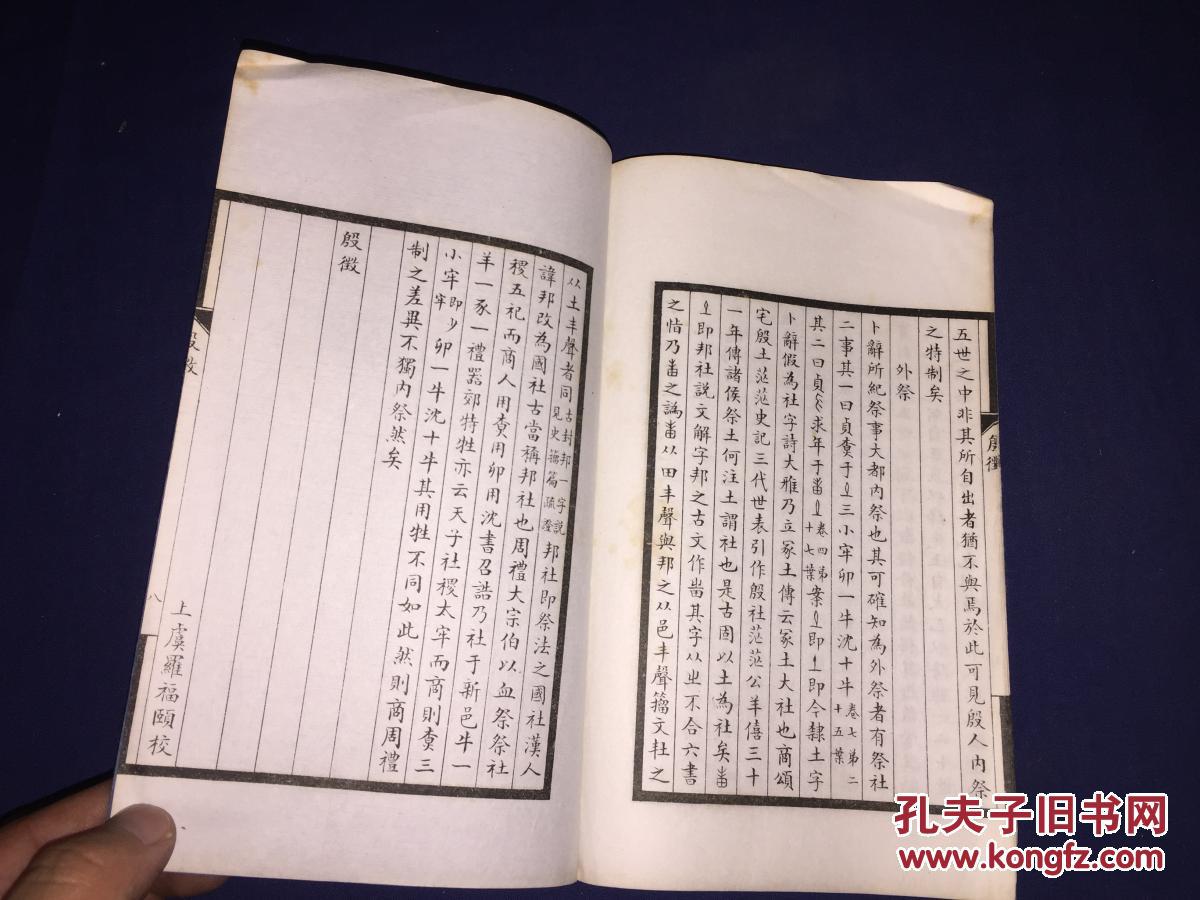 五世之中非其所自出者猶不與焉於此可見殷人內祭
之特制矣
外祭
卜辭所紀祭事大都內祭也其可確知為外祭者有祭社
二事其一曰貞尞于三小牢卯一牛沈十牛卷七第二十五葉
其二曰貞求年于卷四第十七葉案即即今隸土字
卜辭假為社字詩大雅乃立冢土傳云冢土大社也商頌
宅殷土茫茫史記三代世表引作殷社茫茫公羊僖三十
一年傳諸侯祭土何注土謂社也是古固以土為社矣
即邦社說文解字邦之古文作其字从㞢不合六書
之恉乃之譌从田丰聲與邦之从邑丰聲籀文之
从土丰聲者同古封邦一字說見史籀篇疏證邦社即祭法之國社漢人
諱邦改為國社古當稱邦社也周禮大宗伯以血祭祭社
稷五祀而商人用尞用卯用沈書召誥乃社于新邑牛一
羊一豕一禮器郊特牲亦云天子社稷太牢而商則尞三
小牢即少牢卯一牛沈十牛其用牲不同如此然則商周禮
制之差異不獨內祭然矣
殷徵
殷徵
殷徵
八
上虞羅福頤校
孔夫子旧书网
www.kongfz.com